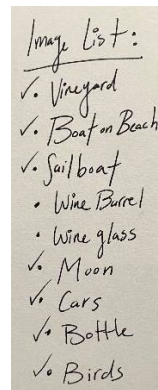 Image List:
✓• Vineyard
✓• Boat on Beach
✓• Sailboat
• Wine Barrel
• Wine glass
✓• Moon
✓• Cars
✓• Bottle
✓• Birds